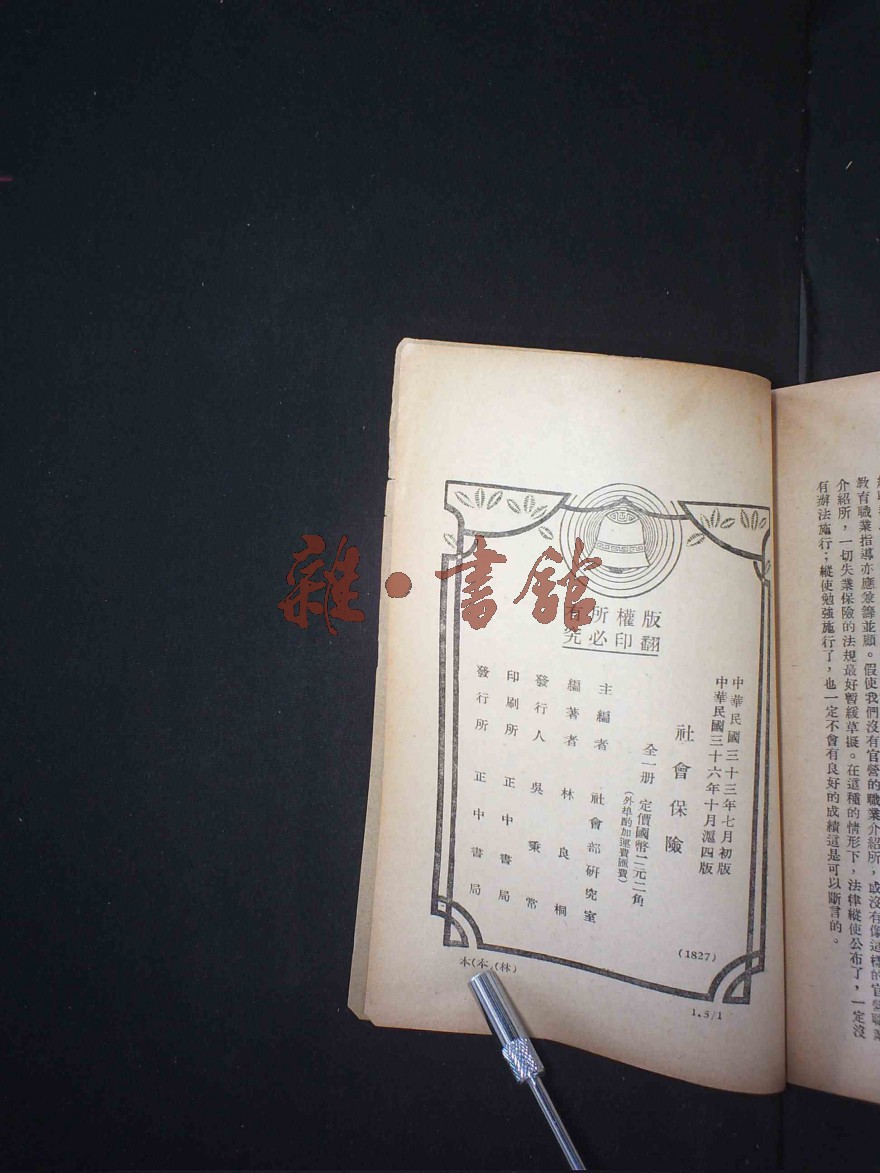 雜·書館
版權所有
翻印必究
中華民國三十三年七月初版
中華民國三十六年十月滬四版
社會保險
全一册 定價國幣二元二角
(外埠酌加運費匯費)
主編者 社會部研究室
編著者 林良桐
發行人 吳秉常
印刷所 正中書局
發行所 正中書局
(1827)
本(本)(林)
1.5/1
教育職業指導亦應兼籌並顧。假使我們沒有官營的職業介紹所,或沒有像這樣的官營職業
介紹所,一切失業保險的法規最好暫緩草擬。在這種的情形下,法律縱使公布了,一定沒
有辦法施行;縱使勉強施行了,也一定不會有良好的成績這是可以斷言的。